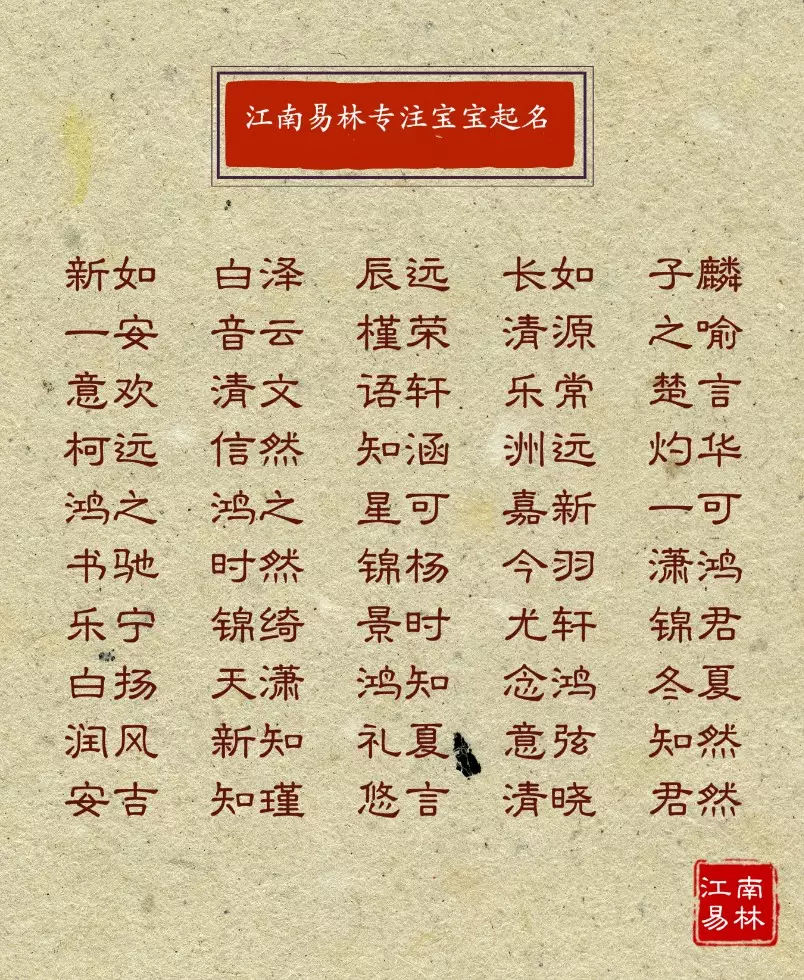 江南易林专注宝宝起名
新如 白泽 辰远 长如 子麟
一安 音云 槿荣 清源 之喻
意欢 清文 语轩 乐常 楚言
柯远 信然 知涵 洲远 灼华
鸿之 鸿之 星可 嘉新 一可
书驰 时然 锦杨 今羽 潇鸿
乐宁 锦绮 景时 尤轩 锦君
白扬 天潇 鸿知 念鸿 冬夏
润风 新知 礼夏 意弦 知然
安吉 知瑾 悠言 清晓 君然
江南
易林